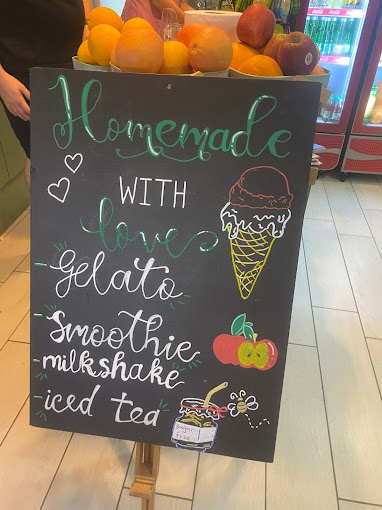 Homemade
WITH
love
Gelato
Smoothie
milkshake
iced tea
sugar
free